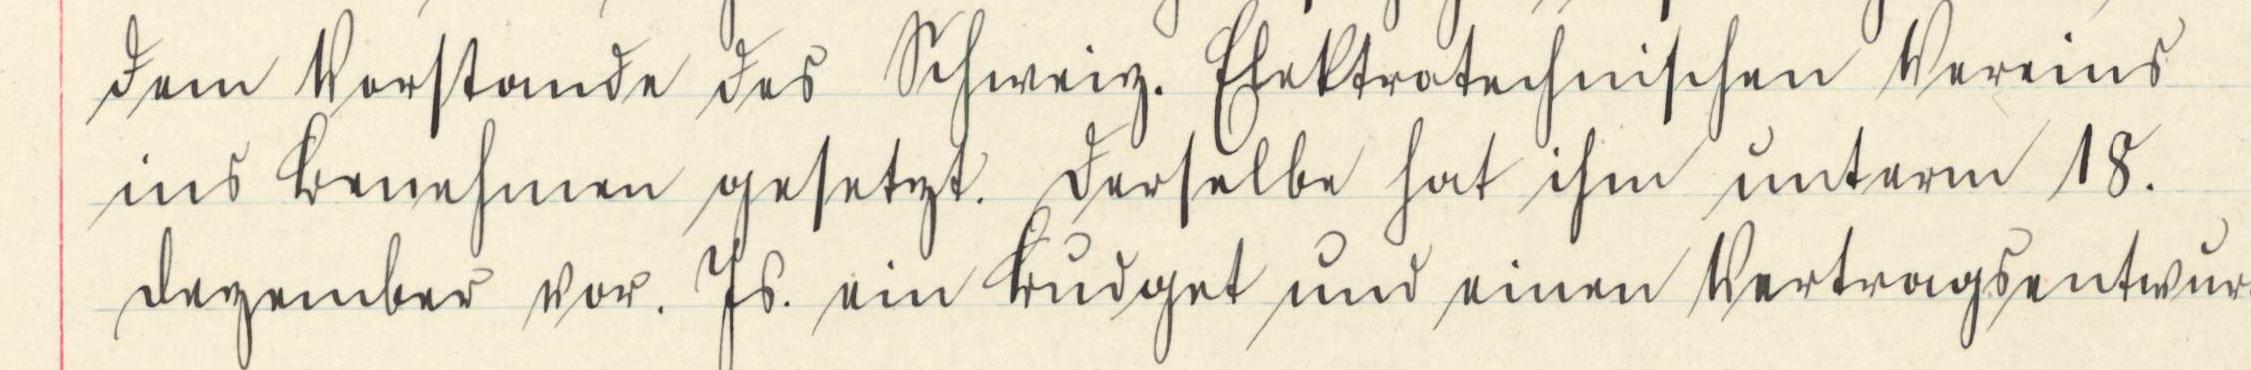 dem Vorstande des Schweiz. Elektrotechnischen Vereins
ins Benehmen gesetzt. Derselbe hat ihm unterm 18.
Dezember vor. Js. ein Budget und einen Vertragsentwur